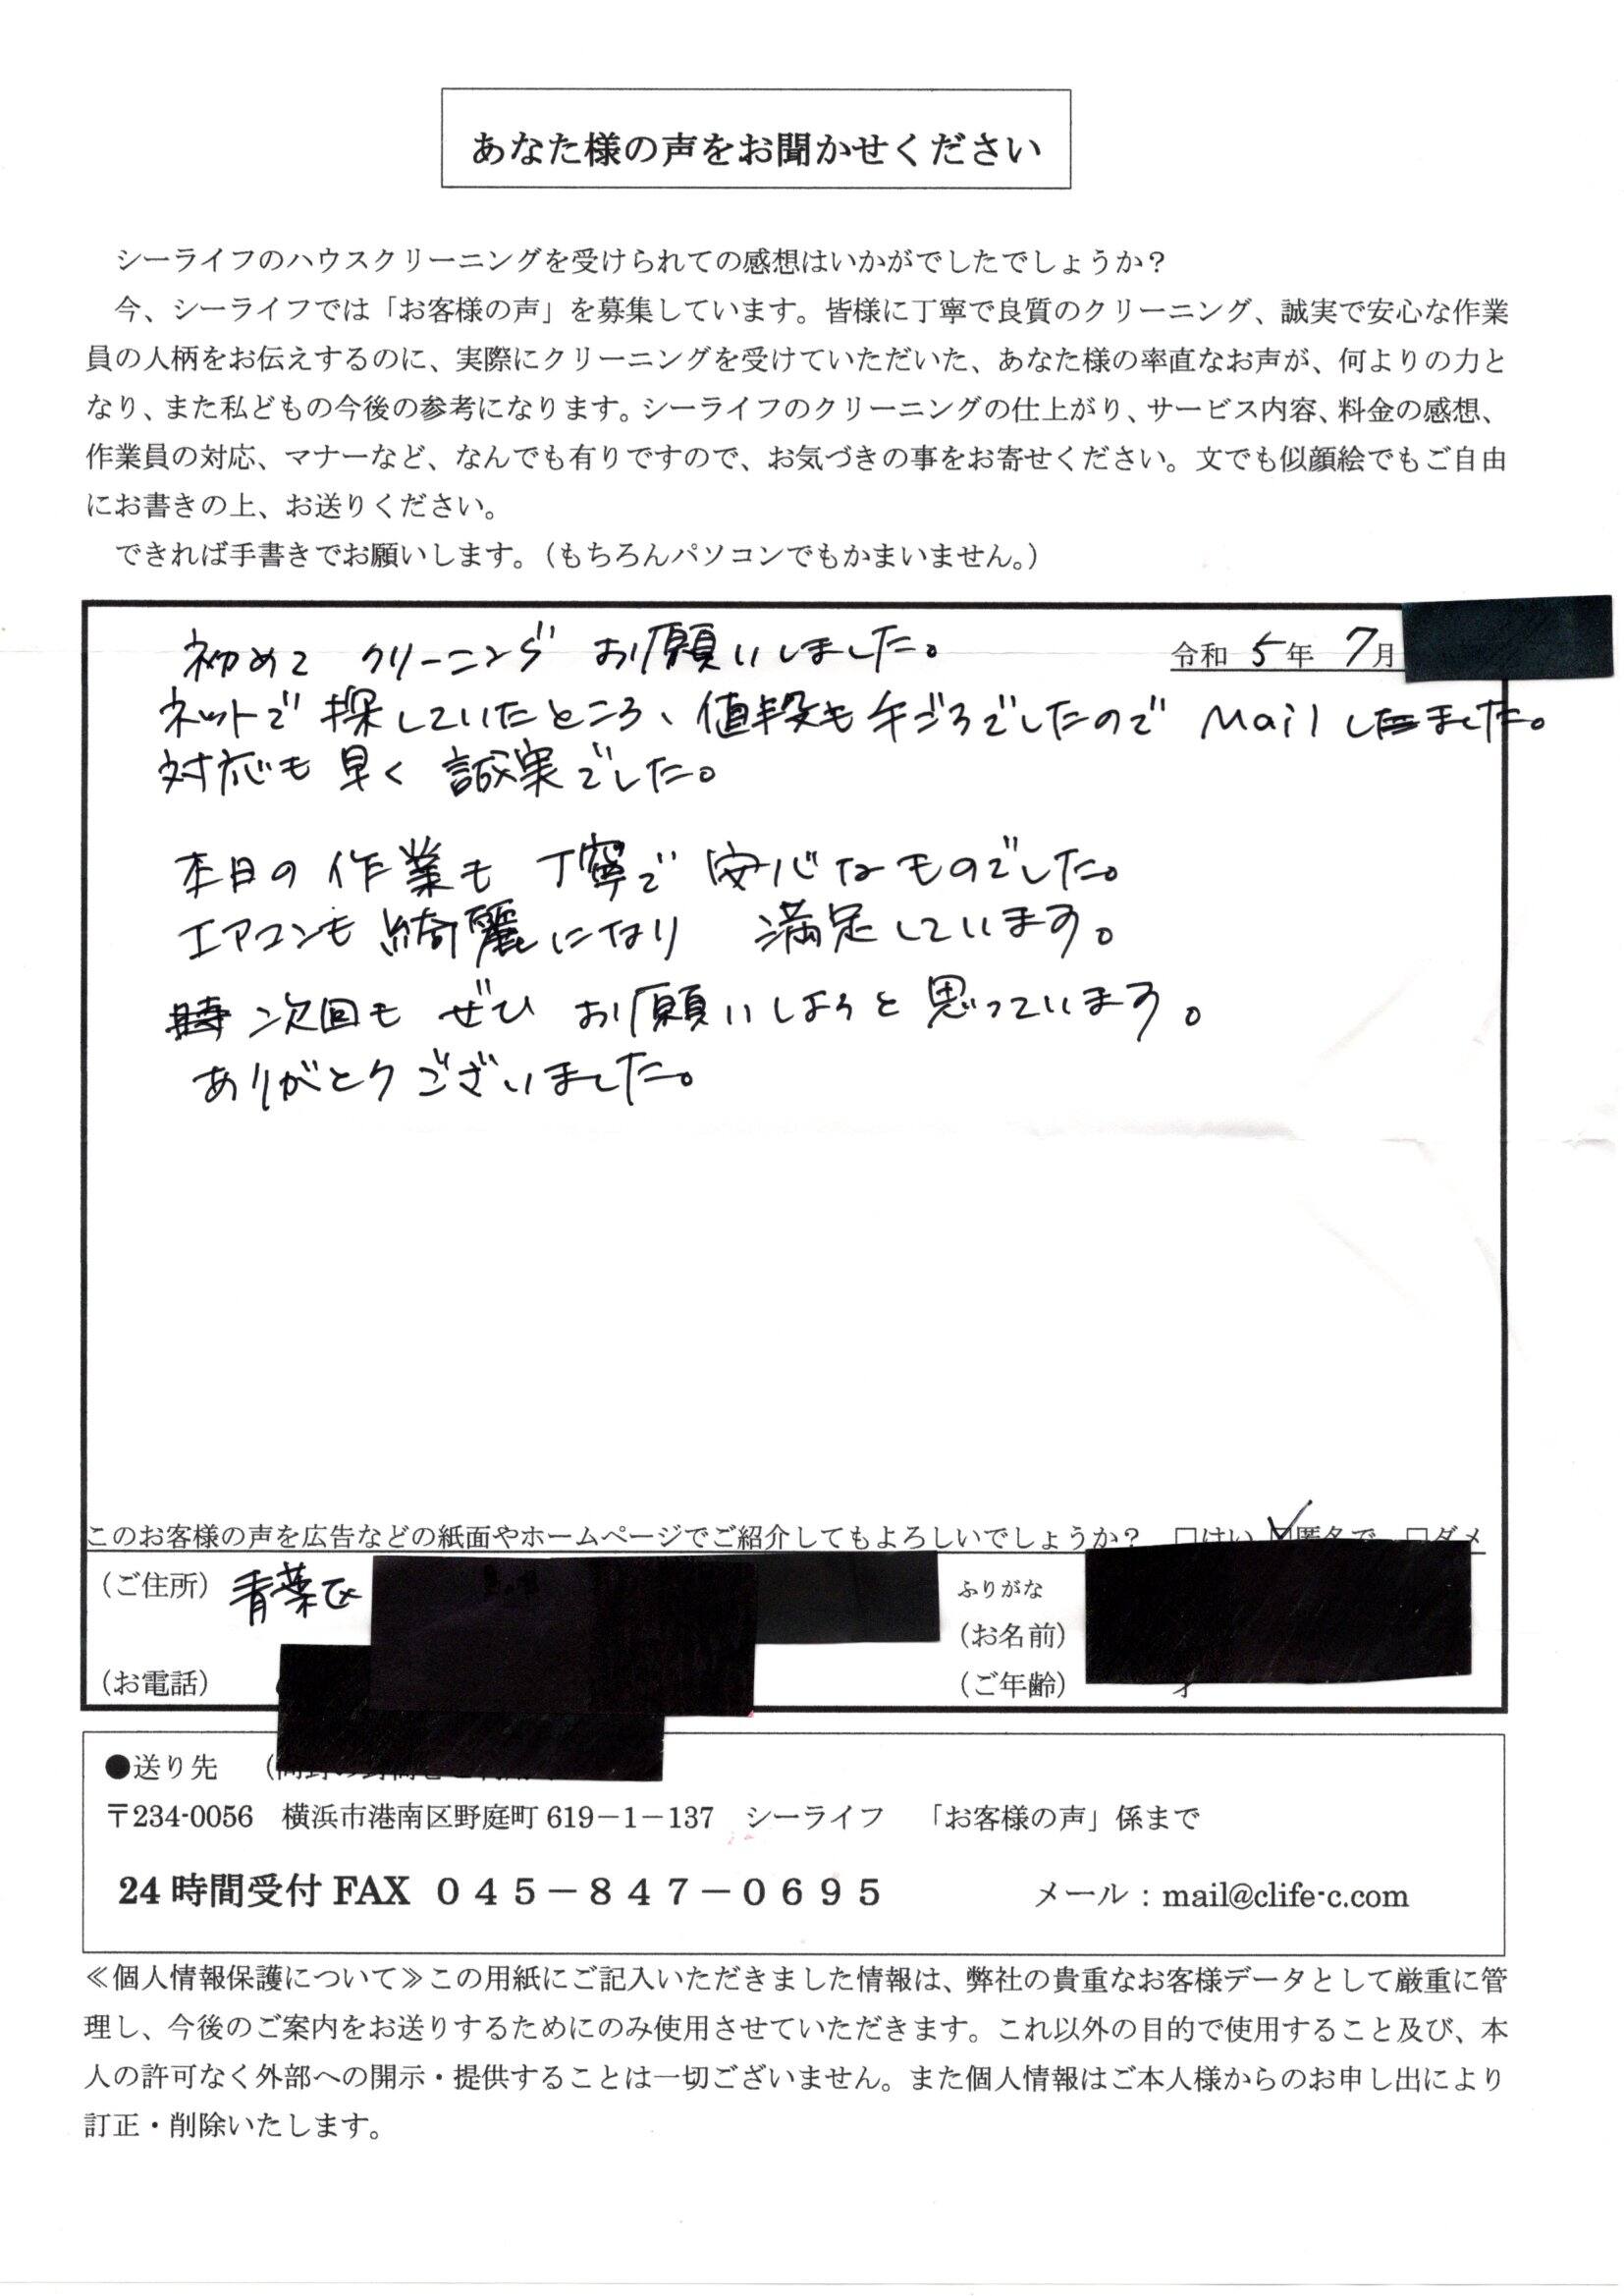 あなた様の声をお聞かせください
シーライフのハウスクリーニングを受けられての感想はいかがでしたでしょうか？
今、シーライフでは「お客様の声」を募集しています。皆様に丁寧で良質のクリーニング、誠実で安心な作業
員の人柄をお伝えするのに、実際にクリーニングを受けていただいた、あなた様の率直なお声が、何よりの力と
なり、また私どもの今後の参考になります。シーライフのクリーニングの仕上がり、サービス内容、料金の感想、
作業員の対応、マナーなど、なんでも有りですので、お気づきの事をお寄せください。文でも似顔絵でもご自由
にお書きの上、お送りください。
できれば手書きでお願いします。（もちろんパソコンでもかまいません。）
令和 5年 7月
初めて クリーニング お願いしました。
ネットで探していたところ、値段も手ごろでしたので Mail しました。
対応も早く 誠実でした。
本日の作業も 丁寧で 安心なものでした。
エアコンも綺麗になり 満足しています。
次回も ぜひ お願いしようと思っています。
ありがとうございました。
このお客様の声を広告などの紙面やホームページでご紹介してもよろしいでしょうか？ □はい ☑匿名で □ダメ
（ご住所） 青葉区 ふりがな
（お名前）
（お電話） （ご年齢） 才
●送り先
〒234-0056 横浜市港南区野庭町 619－1－137 シーライフ 「お客様の声」係まで
24 時間受付 FAX ０４５－８４７－０６９５ メール：mail@clife-c.com
≪個人情報保護について≫この用紙にご記入いただきました情報は、弊社の貴重なお客様データとして厳重に管
理し、今後のご案内をお送りするためにのみ使用させていただきます。これ以外の目的で使用すること及び、本
人の許可なく外部への開示・提供することは一切ございません。また個人情報はご本人様からのお申し出により
訂正・削除いたします。